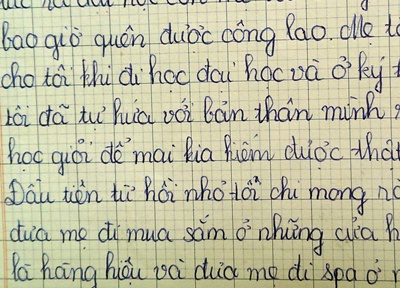 bao giờ quên được công lao. Mẹ
cho tôi khi đi học đại học và ở ký
tôi đã tự hứa với bản thân mình
học giỏi để mai kia kiếm được
Đầu tiên từ hồi nhỏ tôi chỉ mong
đưa mẹ đi mua sắm ở những cửa
là hàng hiệu và đưa mẹ đi spa ở